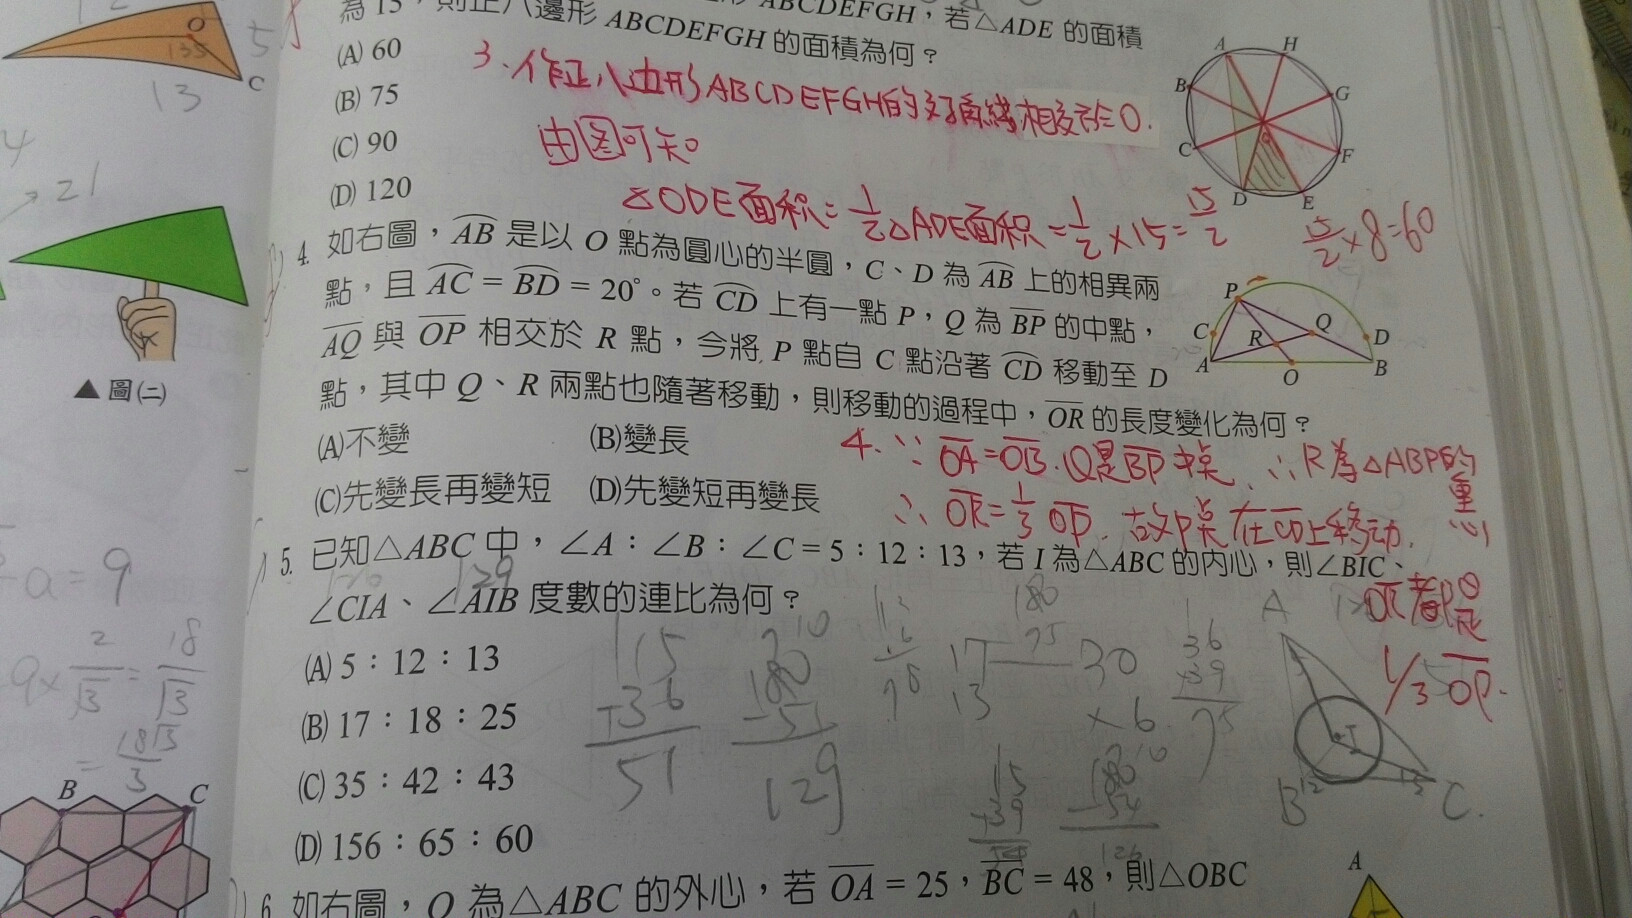 為 15,則正八邊形 ABCDEFGH,若△ADE 的面積
ABCDEFGH 的面積為何?
(A) 60
(B) 75
(C) 90
(D) 120
3. 作正八边形ABCDEFGH的对角線相交於O.
由图可知
△ODE面积=1/2△ADE面积=1/2×15=15/2
15/2×8=60
A H B G C F D E
4. 如右圖,AB 是以 O 點為圓心的半圓,C、D 為 AB 上的相異兩
點,且 AC = BD = 20°。若 CD 上有一點 P,Q 為 BP 的中點,
AQ 與 OP 相交於 R 點,今將 P 點自 C 點沿著 CD 移動至 D
點,其中 Q、R 兩點也隨著移動,則移動的過程中,OR 的長度變化為何?
(A)不變 (B)變長
(C)先變長再變短 (D)先變短再變長
P C Q R D A O B
4. ∵ OA=OB. Q是BP中點 ∴R為△ABP的重心
∴ OR=1/3 OP. 故P點在CD上移动.
OR都是
1/3 OP.
5. 已知△ABC 中,∠A:∠B:∠C = 5:12:13,若 I 為△ABC 的內心,則∠BIC、
∠CIA、∠AIB 度數的連比為何?
(A) 5:12:13
(B) 17:18:25
(C) 35:42:43
(D) 156:65:60
129
15
+36
51
180
-51
129
17
13
30
×6
36
+39
75
15
+39
180
-54
126
A
I
B
C
6. 如右圖,O 為△ABC 的外心,若 OA = 25,BC = 48,則△OBC
A
O
135
5
13
C
4
21
▲圖(二)
a=9
9×2/√3=18/√3
=18√3/3
B C